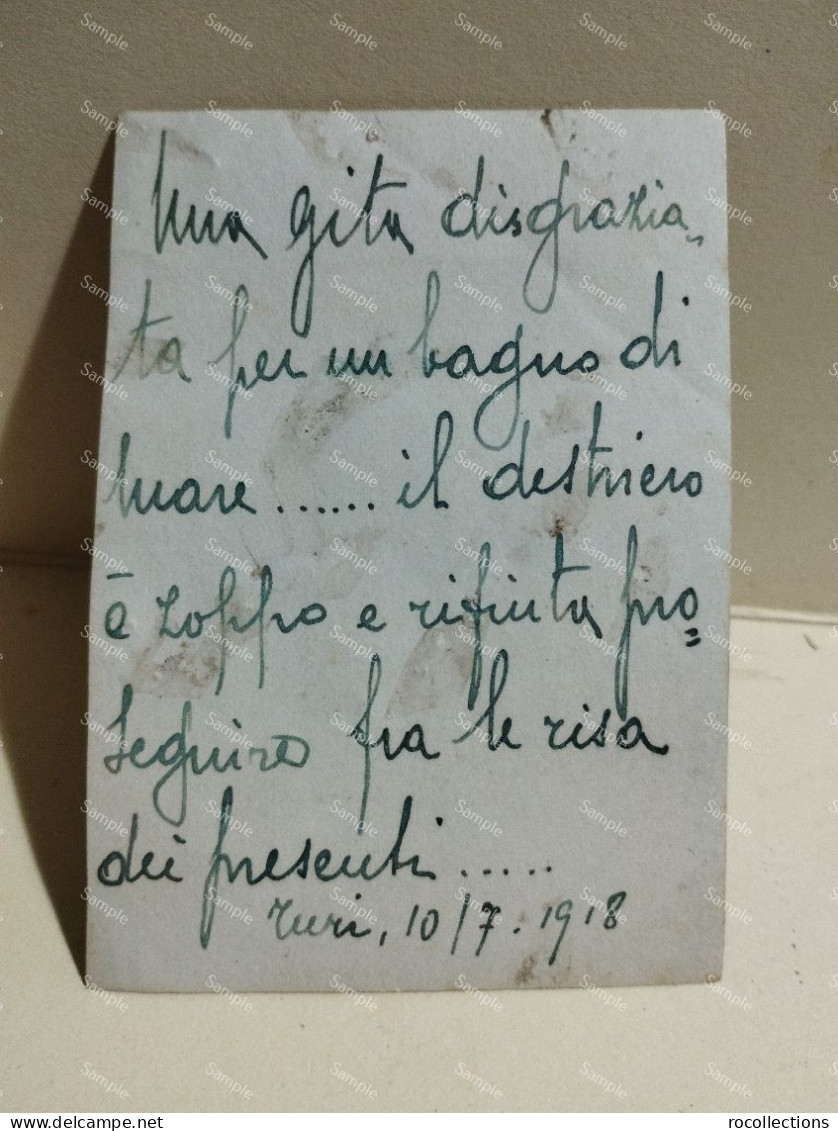 Una gita disgrazia-
ta per un bagno di
mare ...... il destriero
è zoppo e rifiuta pro=
seguire fra le risa
dei presenti .....
Turi, 10/7.1918
rocollections